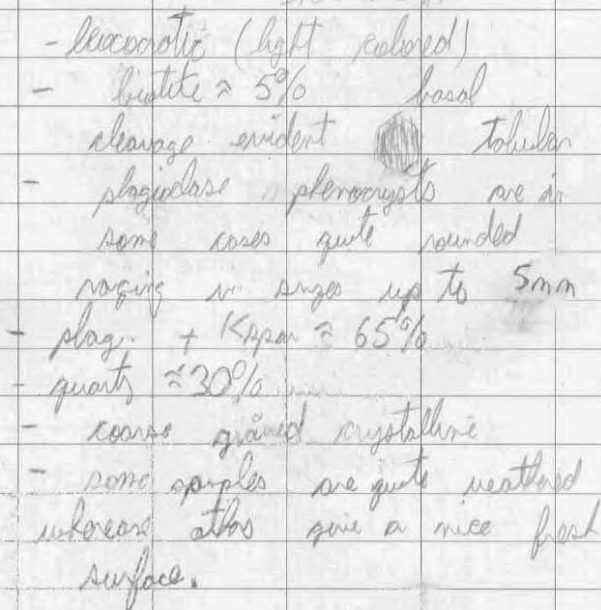 - leucocratic (light colored)
- biotite ≈ 5% basal
cleavage evident tabular
- plagioclase phenocrysts are in
some cases quite rounded
ranging in sizes up to 5mm
- plag. + Kspar ≈ 65%
- quartz ≈ 30%
- coarse grained crystalline
- some samples are quite weathered
whereas others give a nice fresh
surface.